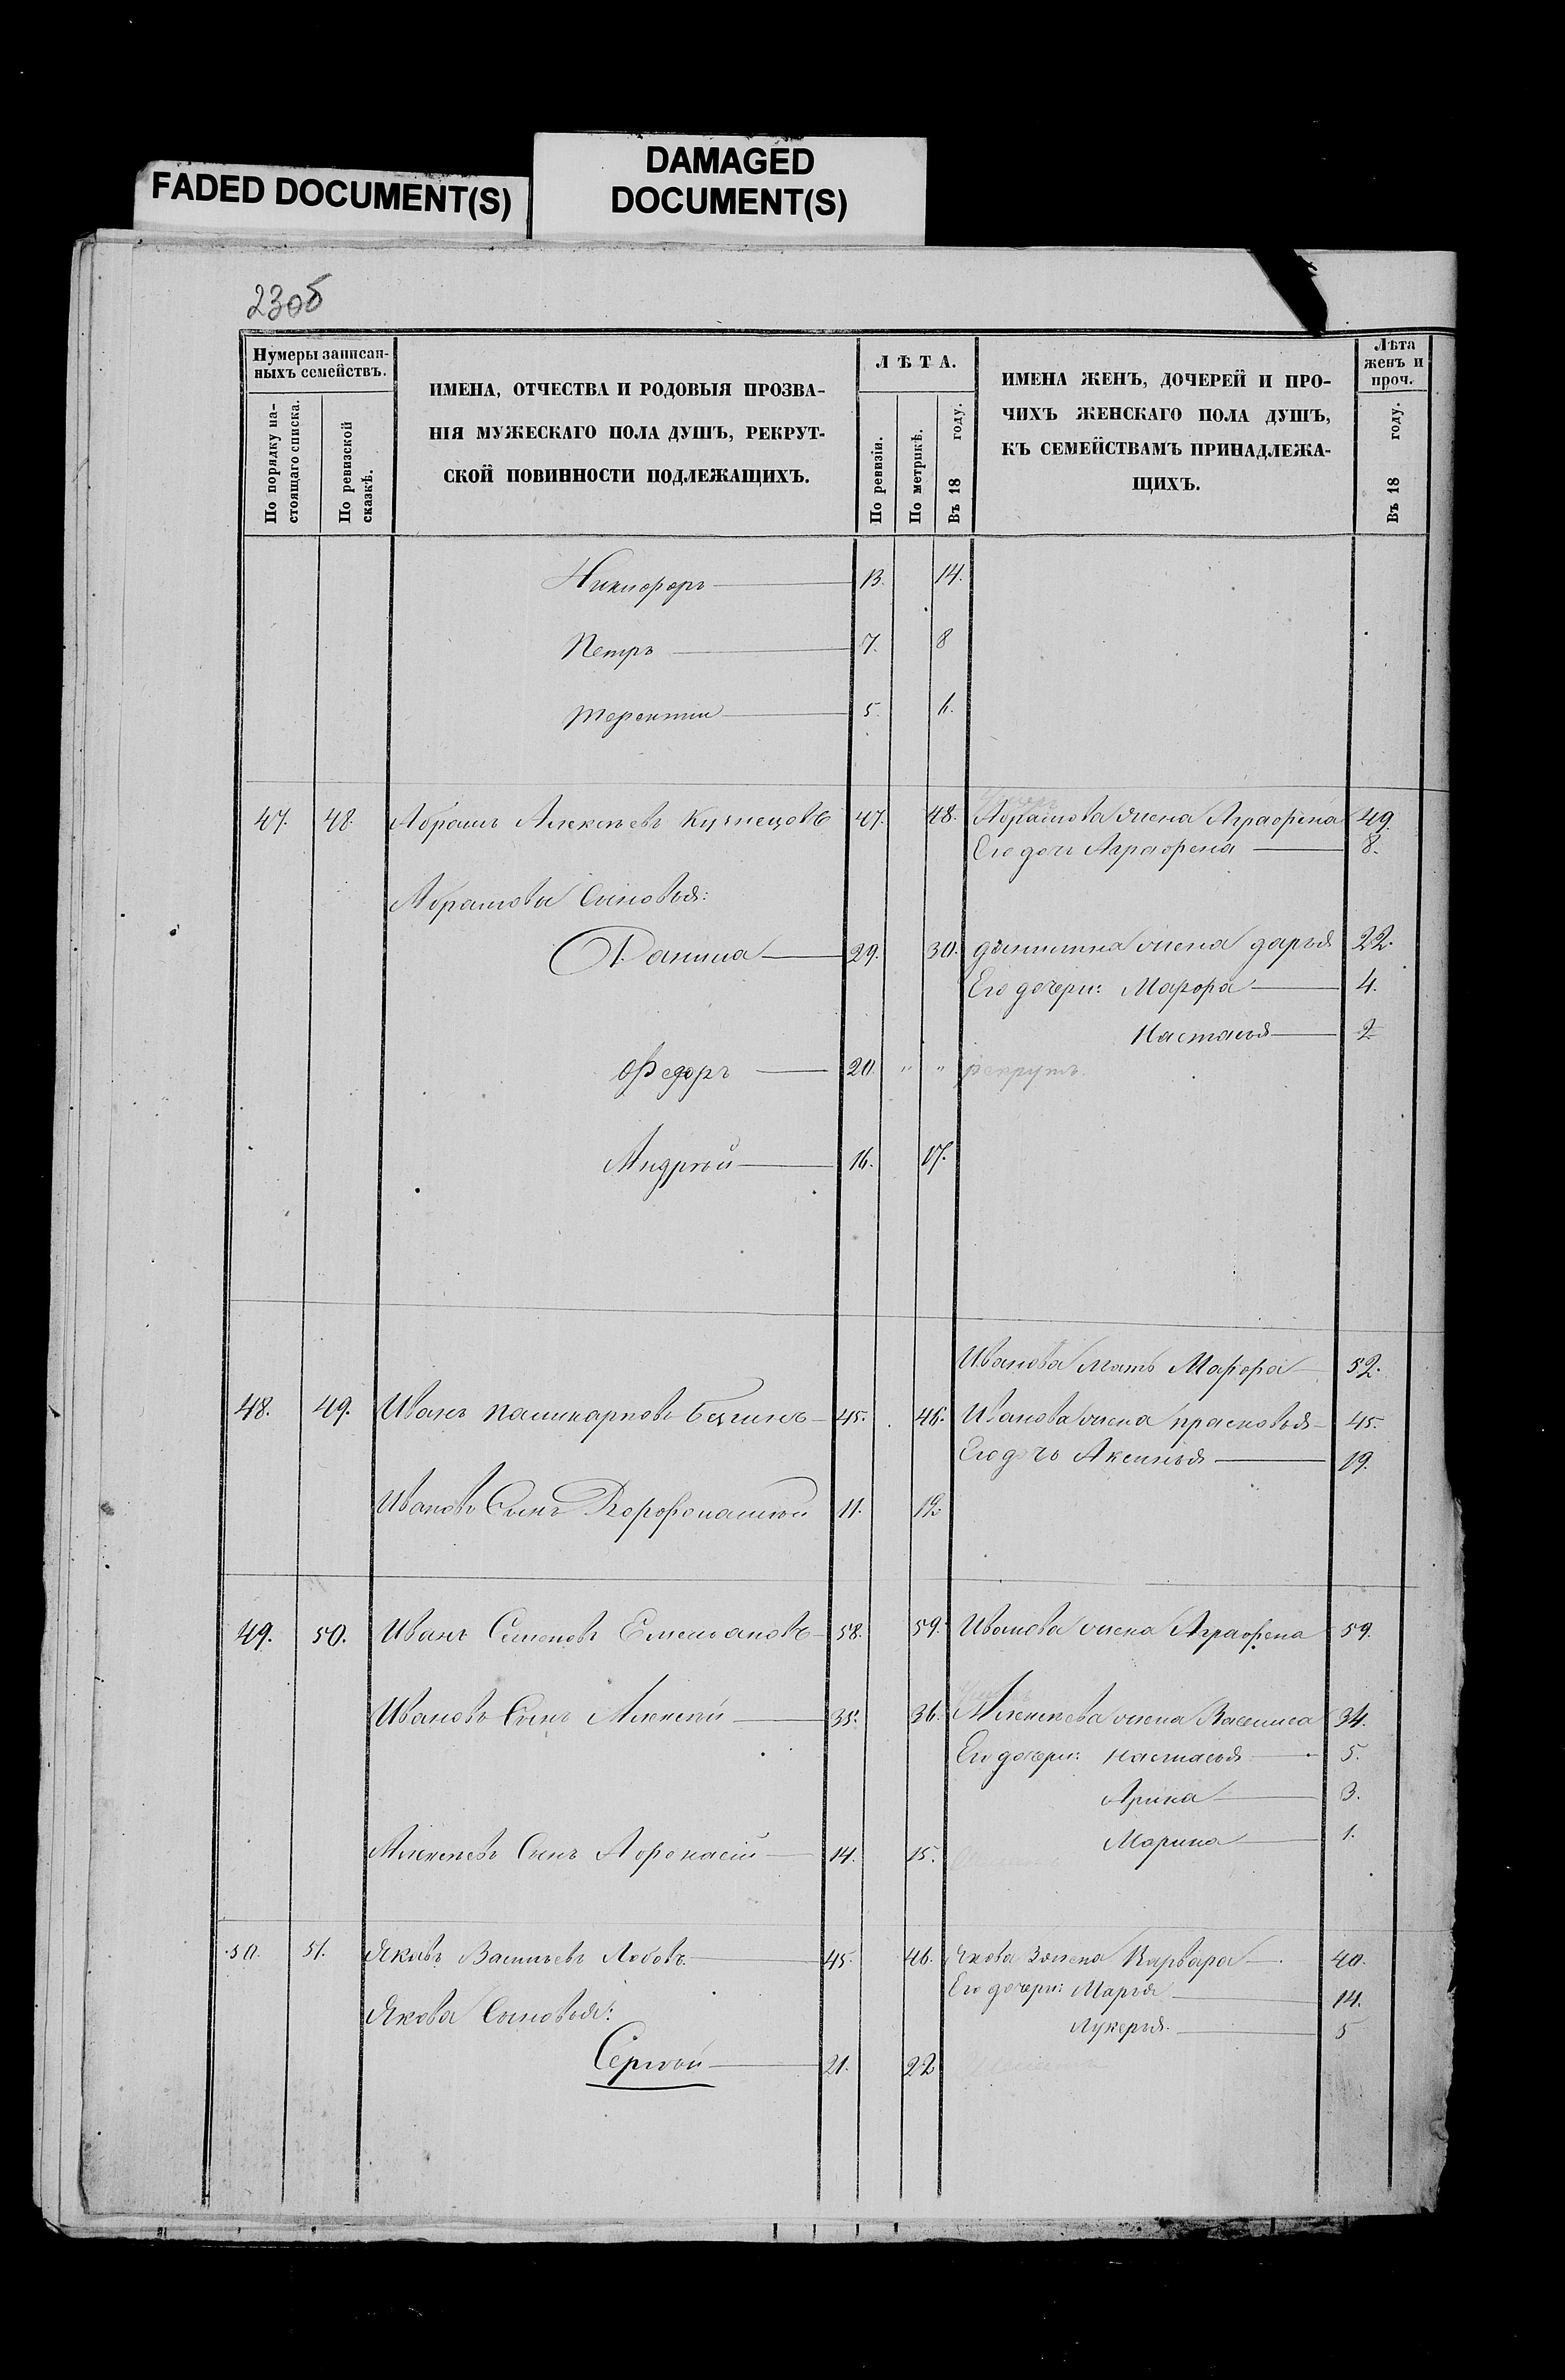 FADED DOCUMENT(S)
DAMAGED
DOCUMENT(S)
230б
Нумеры записан-
ныхъ семействъ.
По порядку на-
стоящаго списка.
По ревизской
сказкѣ.
ИМЕНА, ОТЧЕСТВА И РОДОВЫЯ ПРОЗВА-
НІЯ МУЖЕСКАГО ПОЛА ДУШЪ, РЕКРУТ-
СКОЙ ПОВИННОСТИ ПОДЛЕЖАЩИХЪ.
ЛѢТА.
По ревизіи.
По метрикѣ.
Въ 18 году.
ИМЕНА ЖЕНЪ, ДОЧЕРЕЙ И ПРО-
ЧИХЪ ЖЕНСКАГО ПОЛА ДУШЪ,
КЪ СЕМЕЙСТВАМЪ ПРИНАДЛЕЖА-
ЩИХЪ.
Лѣта
женъ и
проч.
Въ 18 году.
Никифоръ 13. 14.
Петръ 7. 8
Терентии 5. 6.
47. 48. Абрамъ Алексѣевъ Кузнецовъ 47. 48. Абрамова жена Аграфена 49.
Его дочь Аграфена 8.
Абрамова Сыновья:
Данила 29. 30. данилина жена дарья 22.
Его дочери: Марфа 4.
Настасья 2
Федоръ 20. " " рекрутъ.
Андрѣй 16. 17.
Иванова мать Марфа 52.
48. 49. Иванъ Поликарповъ 45. 46. Иванова жена прасковья 45.
Его дочь Аксинья 19.
Ивановъ Сынъ 11. 12.
49. 50. Иванъ Семеновъ Емельановъ 58. 59. Иванова жена Аграфена 59.
Ивановъ Сынъ Алексѣй 35. 36. Алексѣева жена Василиса 34.
Его дочери: настасья 5.
Арина 3.
Марина 1.
Алексѣевъ Сынъ Афонасій 14. 15.
50. 51. Яковъ Васильевъ Лобовъ 45. 46. Якова жена Варвара 40.
Его дочери: Марья 14.
Лукерья. 5
Якова Сыновья:
Сергѣй 21. 22